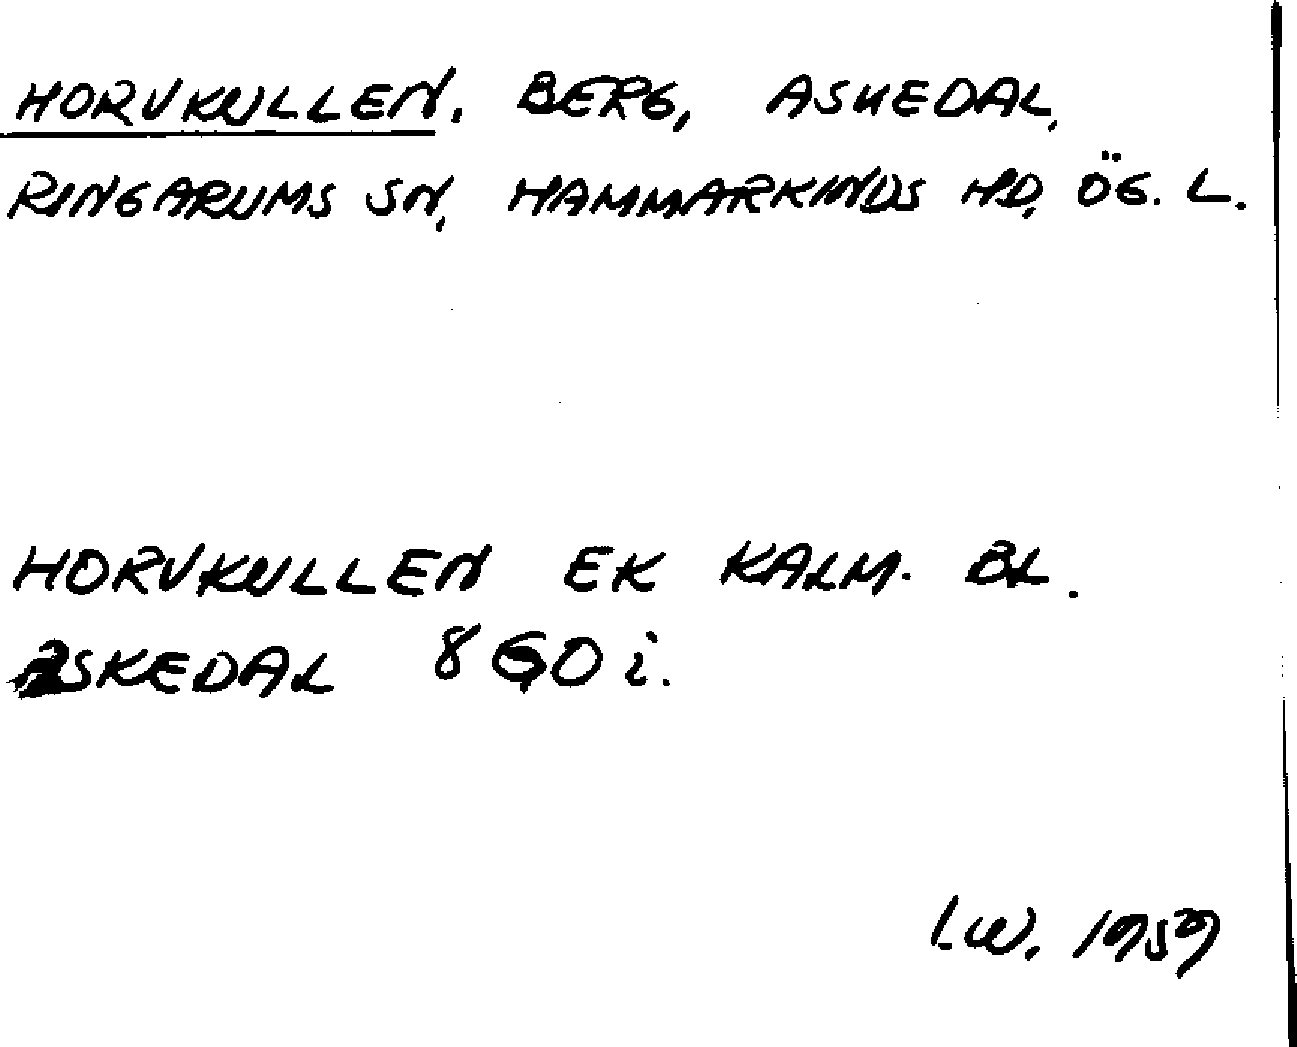 HORVKULLEN. BERG, ASKEDAL,
RINGARUMS SN, HAMMARKINDS HD, ÖG. L.
HORVKULLEN EK KALM. BL.
ASKEDAL 860 i.
I.W. 1959